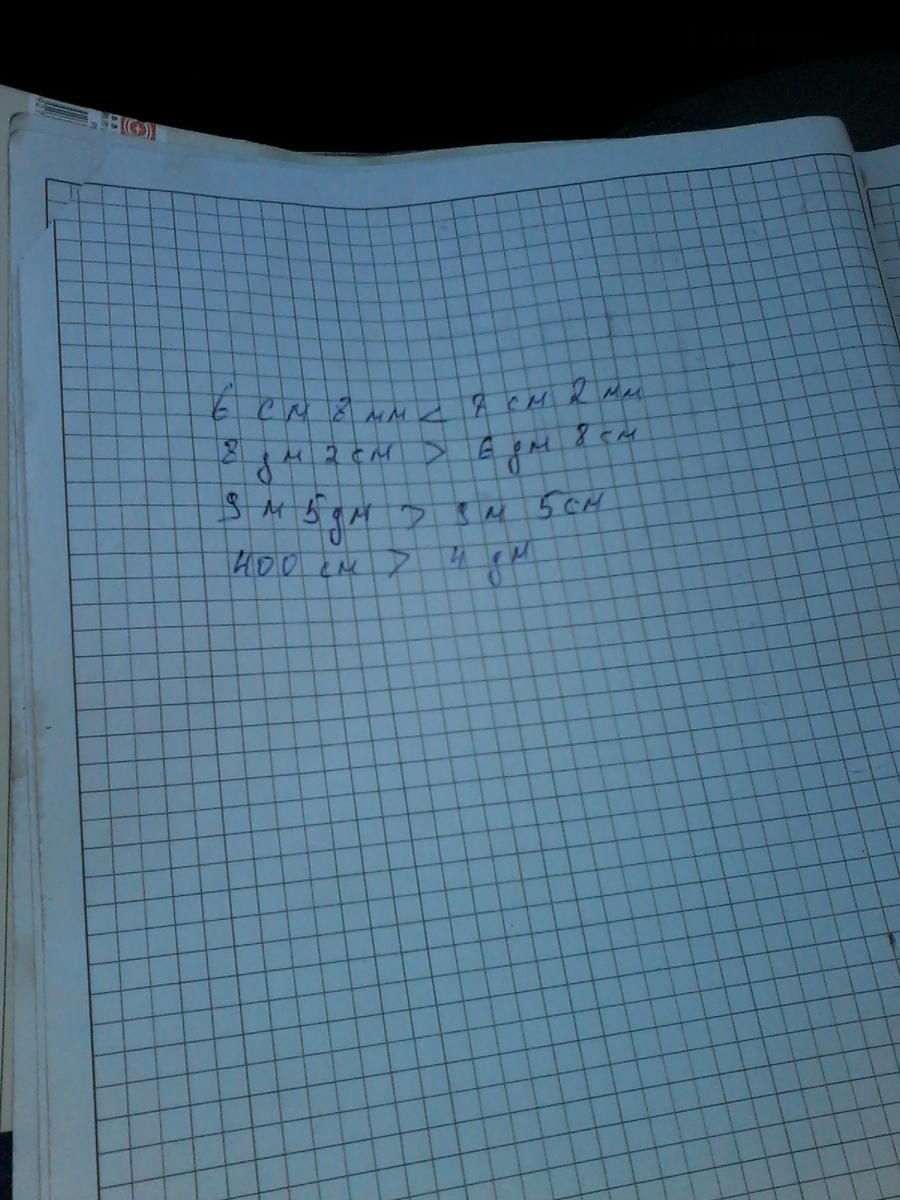 6 см 8 мм < 7 см 2 мм
8 дм 2 см > 6 дм 8 см
9 м 5 дм > 9 м 5 см
400 см > 4 дм